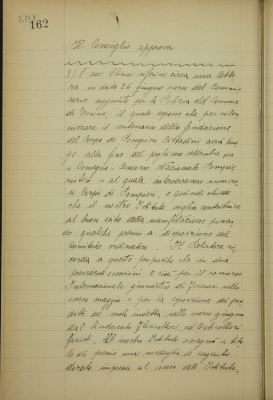 162
Il Consiglio approva
8) L'avv. riferisce circa una lette
ra in data 26 giugno scorso del Commis
sario aggiunto per la Polizia del Comune
di Firenze, il quale espone che per solen
nizzare il centenario della fondazione
del Corpo dei Pompieri Cittadini avrà luo
go alla fine del prossimo settembre un
Convegno - Concorso Nazionale Pompie
ristico al quale interverranno numero
si Corpi di Pompieri e quindi chiede
che il nostro Istituto voglia contribuire
al buon esito della manifestazione ponen
do qualche premio a disposizione del
Comitato ordinatore. Il Relatore ri
corda a questo proposito che in due
precedenti occasioni e cioè per il concorso
Internazionale ginnastico di Firenze nello
scorso maggio e per la esposizione dei pro
dotti del indetta nello scorso giugno
dal Sindacato Floricultori ed Orticultori
fascist. Il nostro Istituto assegnò a tito
lo di premio una medaglia di argento
dorato impressa al conio dell'Istituto,